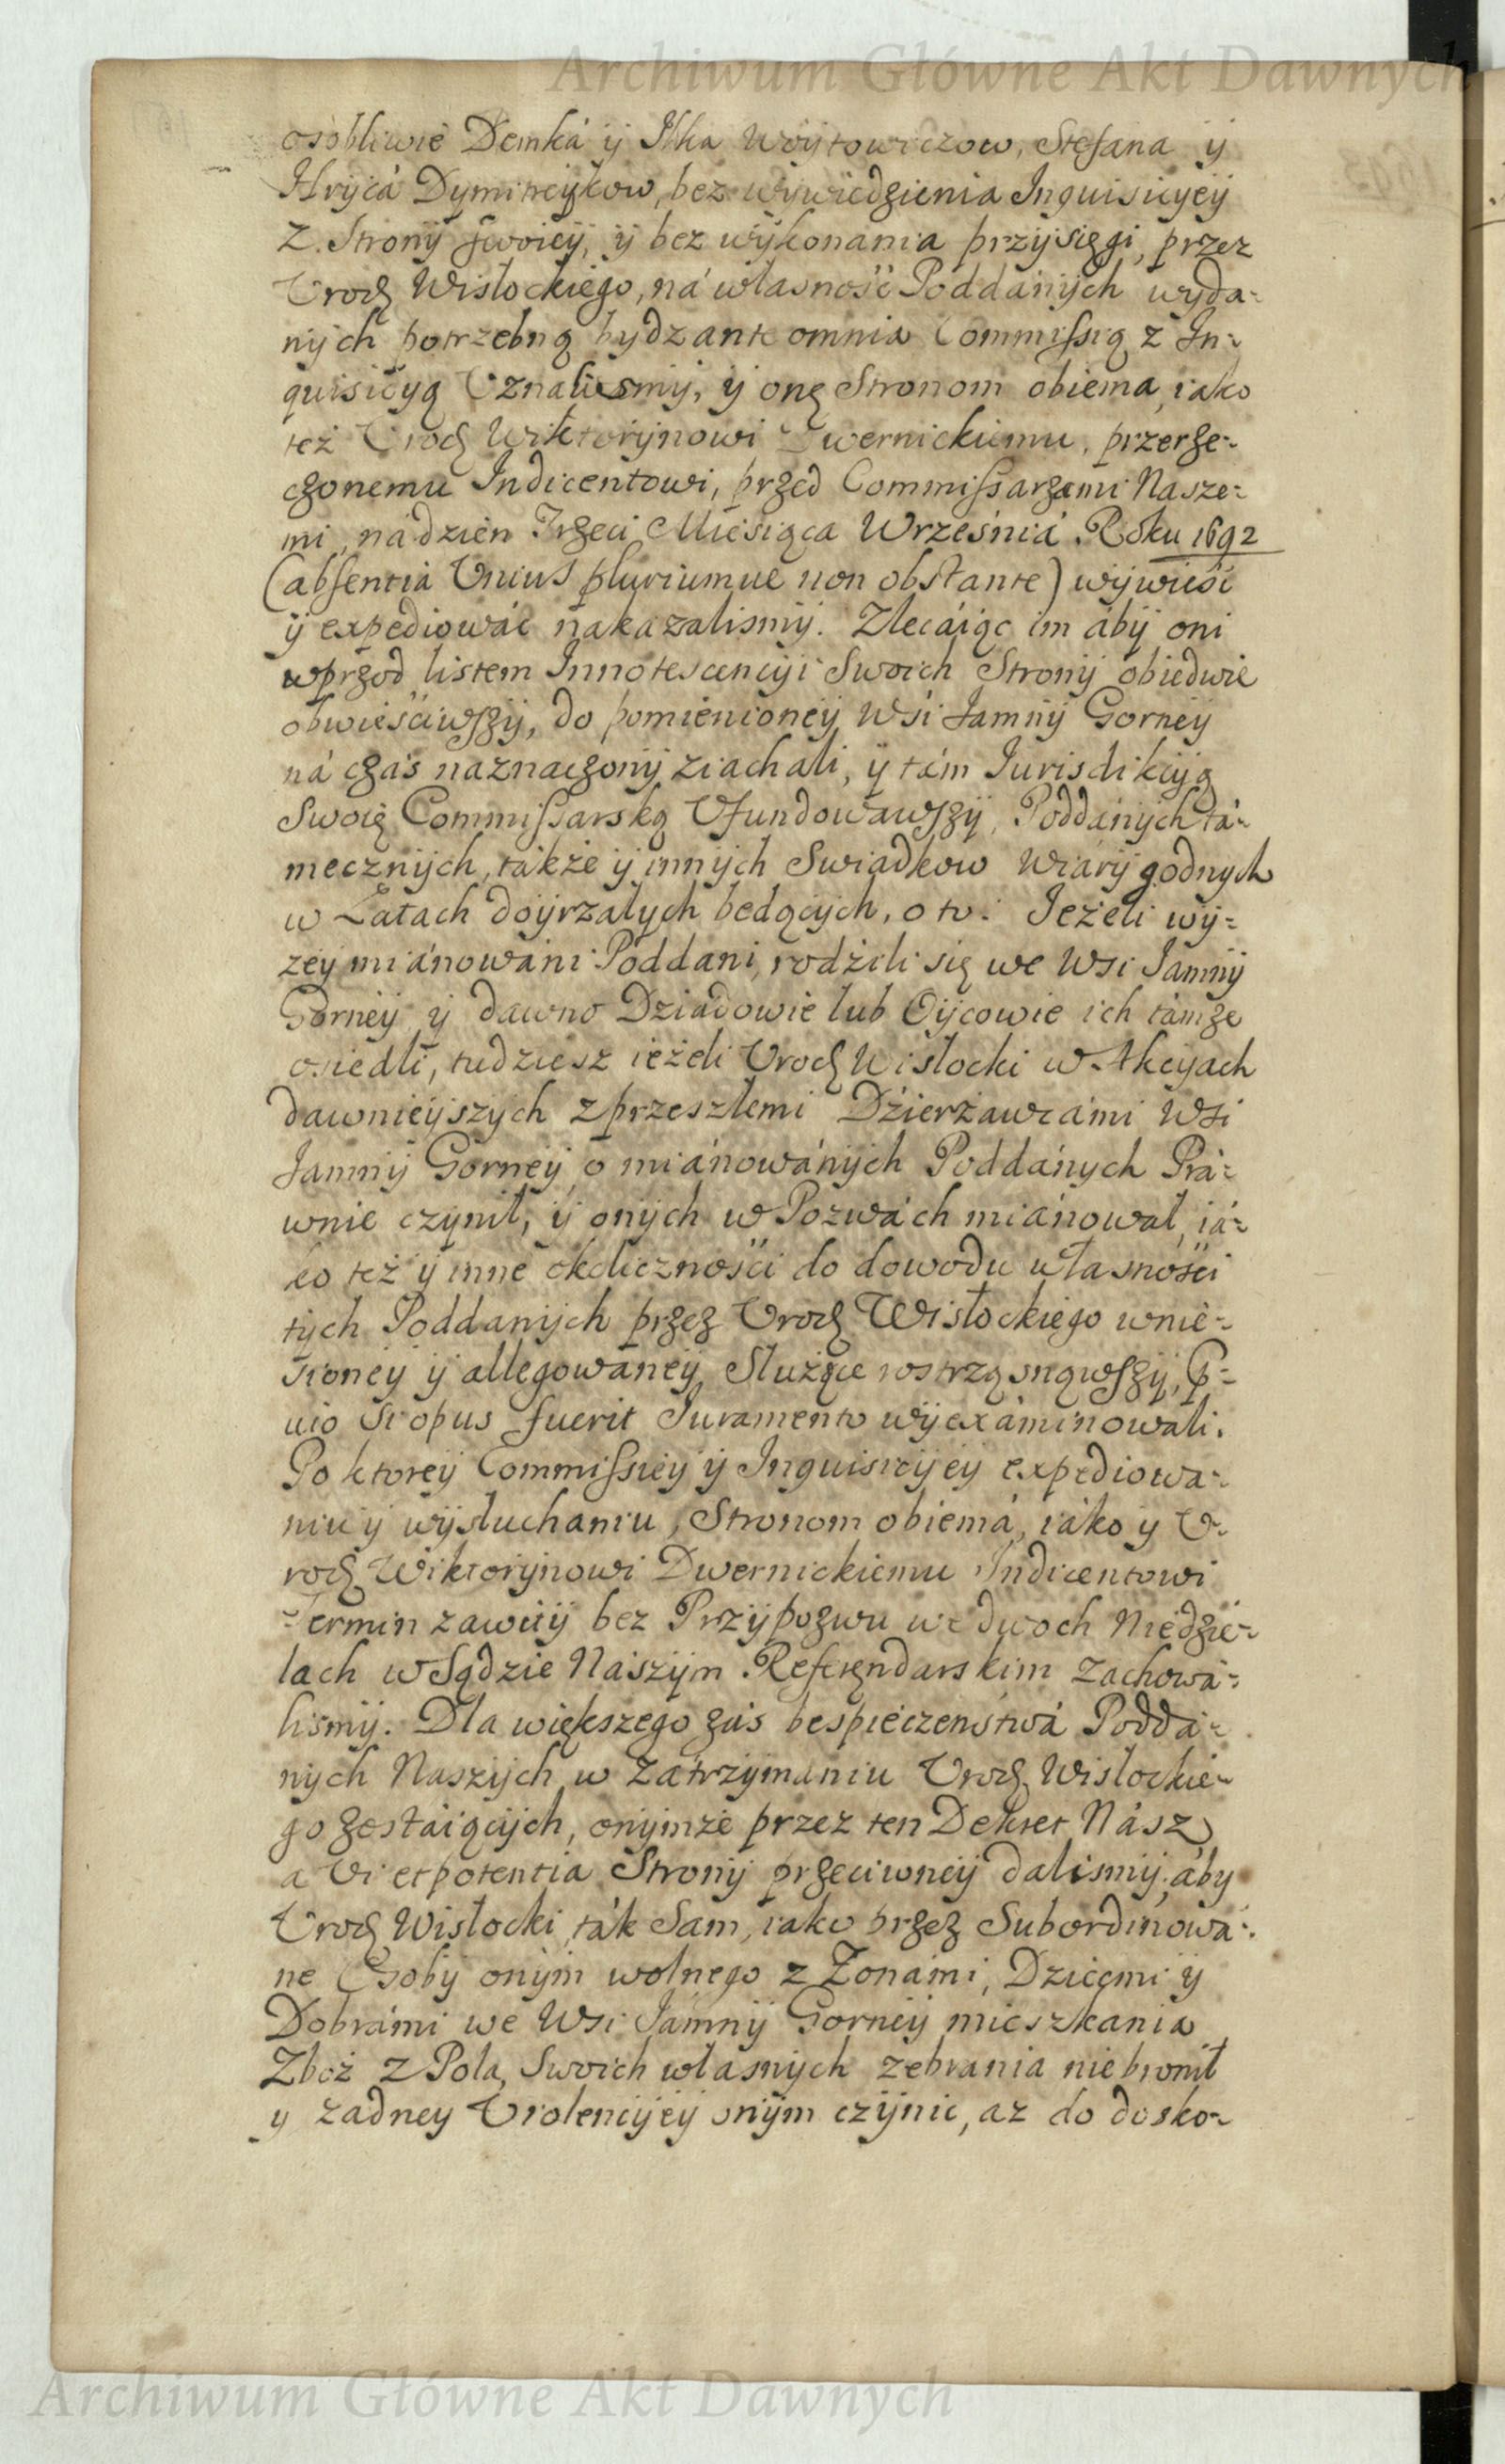 Archiwum Główne Akt Dawnych
osobliwie Demká ÿ Ilka Woÿtowiczow, Stefana ÿ
Hrÿcá Dÿmitrÿkow, bez wÿwiedzienia Inquisicÿeÿ
Z Stronÿ swoieÿ, ÿ bez wÿkonania przÿsięgi, przez
Urodz Wisłockiego, ná własność Poddánÿch wÿda-
nÿch potrzebną bydz ante omnia Commissią z In-
quisicÿą Uznalismÿ, ÿ onę Stronom obiema, iako
też Urodz Wiktorÿnowi Dwernickiemu, przerze-
czonemu Indicentowi, przed Commissarzami Nasze-
mi, ná dzien Trzeci Miesiąca Wrześniá Roku 1692
(absentia Unius pluriumue non obstante) wÿwieść
ÿ expediowáć nakazalismÿ. Zlecáiąc im ábÿ oni
wprzod listem Innotescencÿi Swoich Stronÿ obiedwie
obwieściwszÿ, do pomienioneÿ Wsi Jamnÿ Gorneÿ
ná czas naznaczonÿ ziachali, ÿ tám Iurisdikcÿą
Swoię Commissarską Ufundowawszÿ, Poddánÿch tá-
mecznÿch, także ÿ innÿch Swiadkow Wiárÿ godnych
w Latach doÿrzałych bedącÿch, o to: Jeżeli wÿ-
żeÿ miánowáni Poddani, rodzili się we Wsi Jamnÿ
Gorneÿ ÿ dawno Dziadowie lub Oÿcowie ich támze
osiedli, tudziesz ieżeli Urodz Wisłocki w Akcÿach
dawnieÿszÿch z przeszłemi Dzierżawcámi Wsi
Jamnÿ Gorneÿ o miánowánÿch Poddánych Prá-
wnie czÿnił, ÿ onÿch w Pozwách miánował, iá-
ko też ÿ inne okoliczności do dowodu własności
tÿch Poddanÿch przez Urodz Wisłockiego wnie-
sioneÿ ÿ allegowáneÿ Służące rostrząsnąwszÿ, P-
uio si opus fuerit Iuramento wÿexáminowali.
Po ktoreÿ Commissieÿ ÿ Inquisicÿeÿ expediowa-
niu ÿ wÿsłuchaniu, Stronom obiemá, iáko y U-
rodz Wiktorÿnowi Dwernickiemu Indicentowi
Termin zawitÿ bez Przÿpozwu we dwoch Niedzie-
lach w Sądzie Naszÿm Referendarskim zachowá-
lismÿ. Dla większego zás bespieczenstwá Poddá-
nÿch Naszÿch w zátrzÿmániu Urodz Wisłockie-
go zostáiącÿch, onÿmże przez ten Dekret Nász
a Vi et potentia Stronÿ przeciwneÿ dalismÿ, ábÿ
Urodz Wisłocki ták Sam, iako przez Subordinowá-
ne Osobÿ onÿm wolnego z Zonámi, Dziećmi ÿ
Dobrámi we Wsi Jámnÿ Gorneÿ mieszkania
Zboż z Pola, Swoich własnych zebrania nie bronił
y żadneÿ Violencÿeÿ onÿm czÿnic, aż do dosko-
Archiwum Główne Akt Dawnych